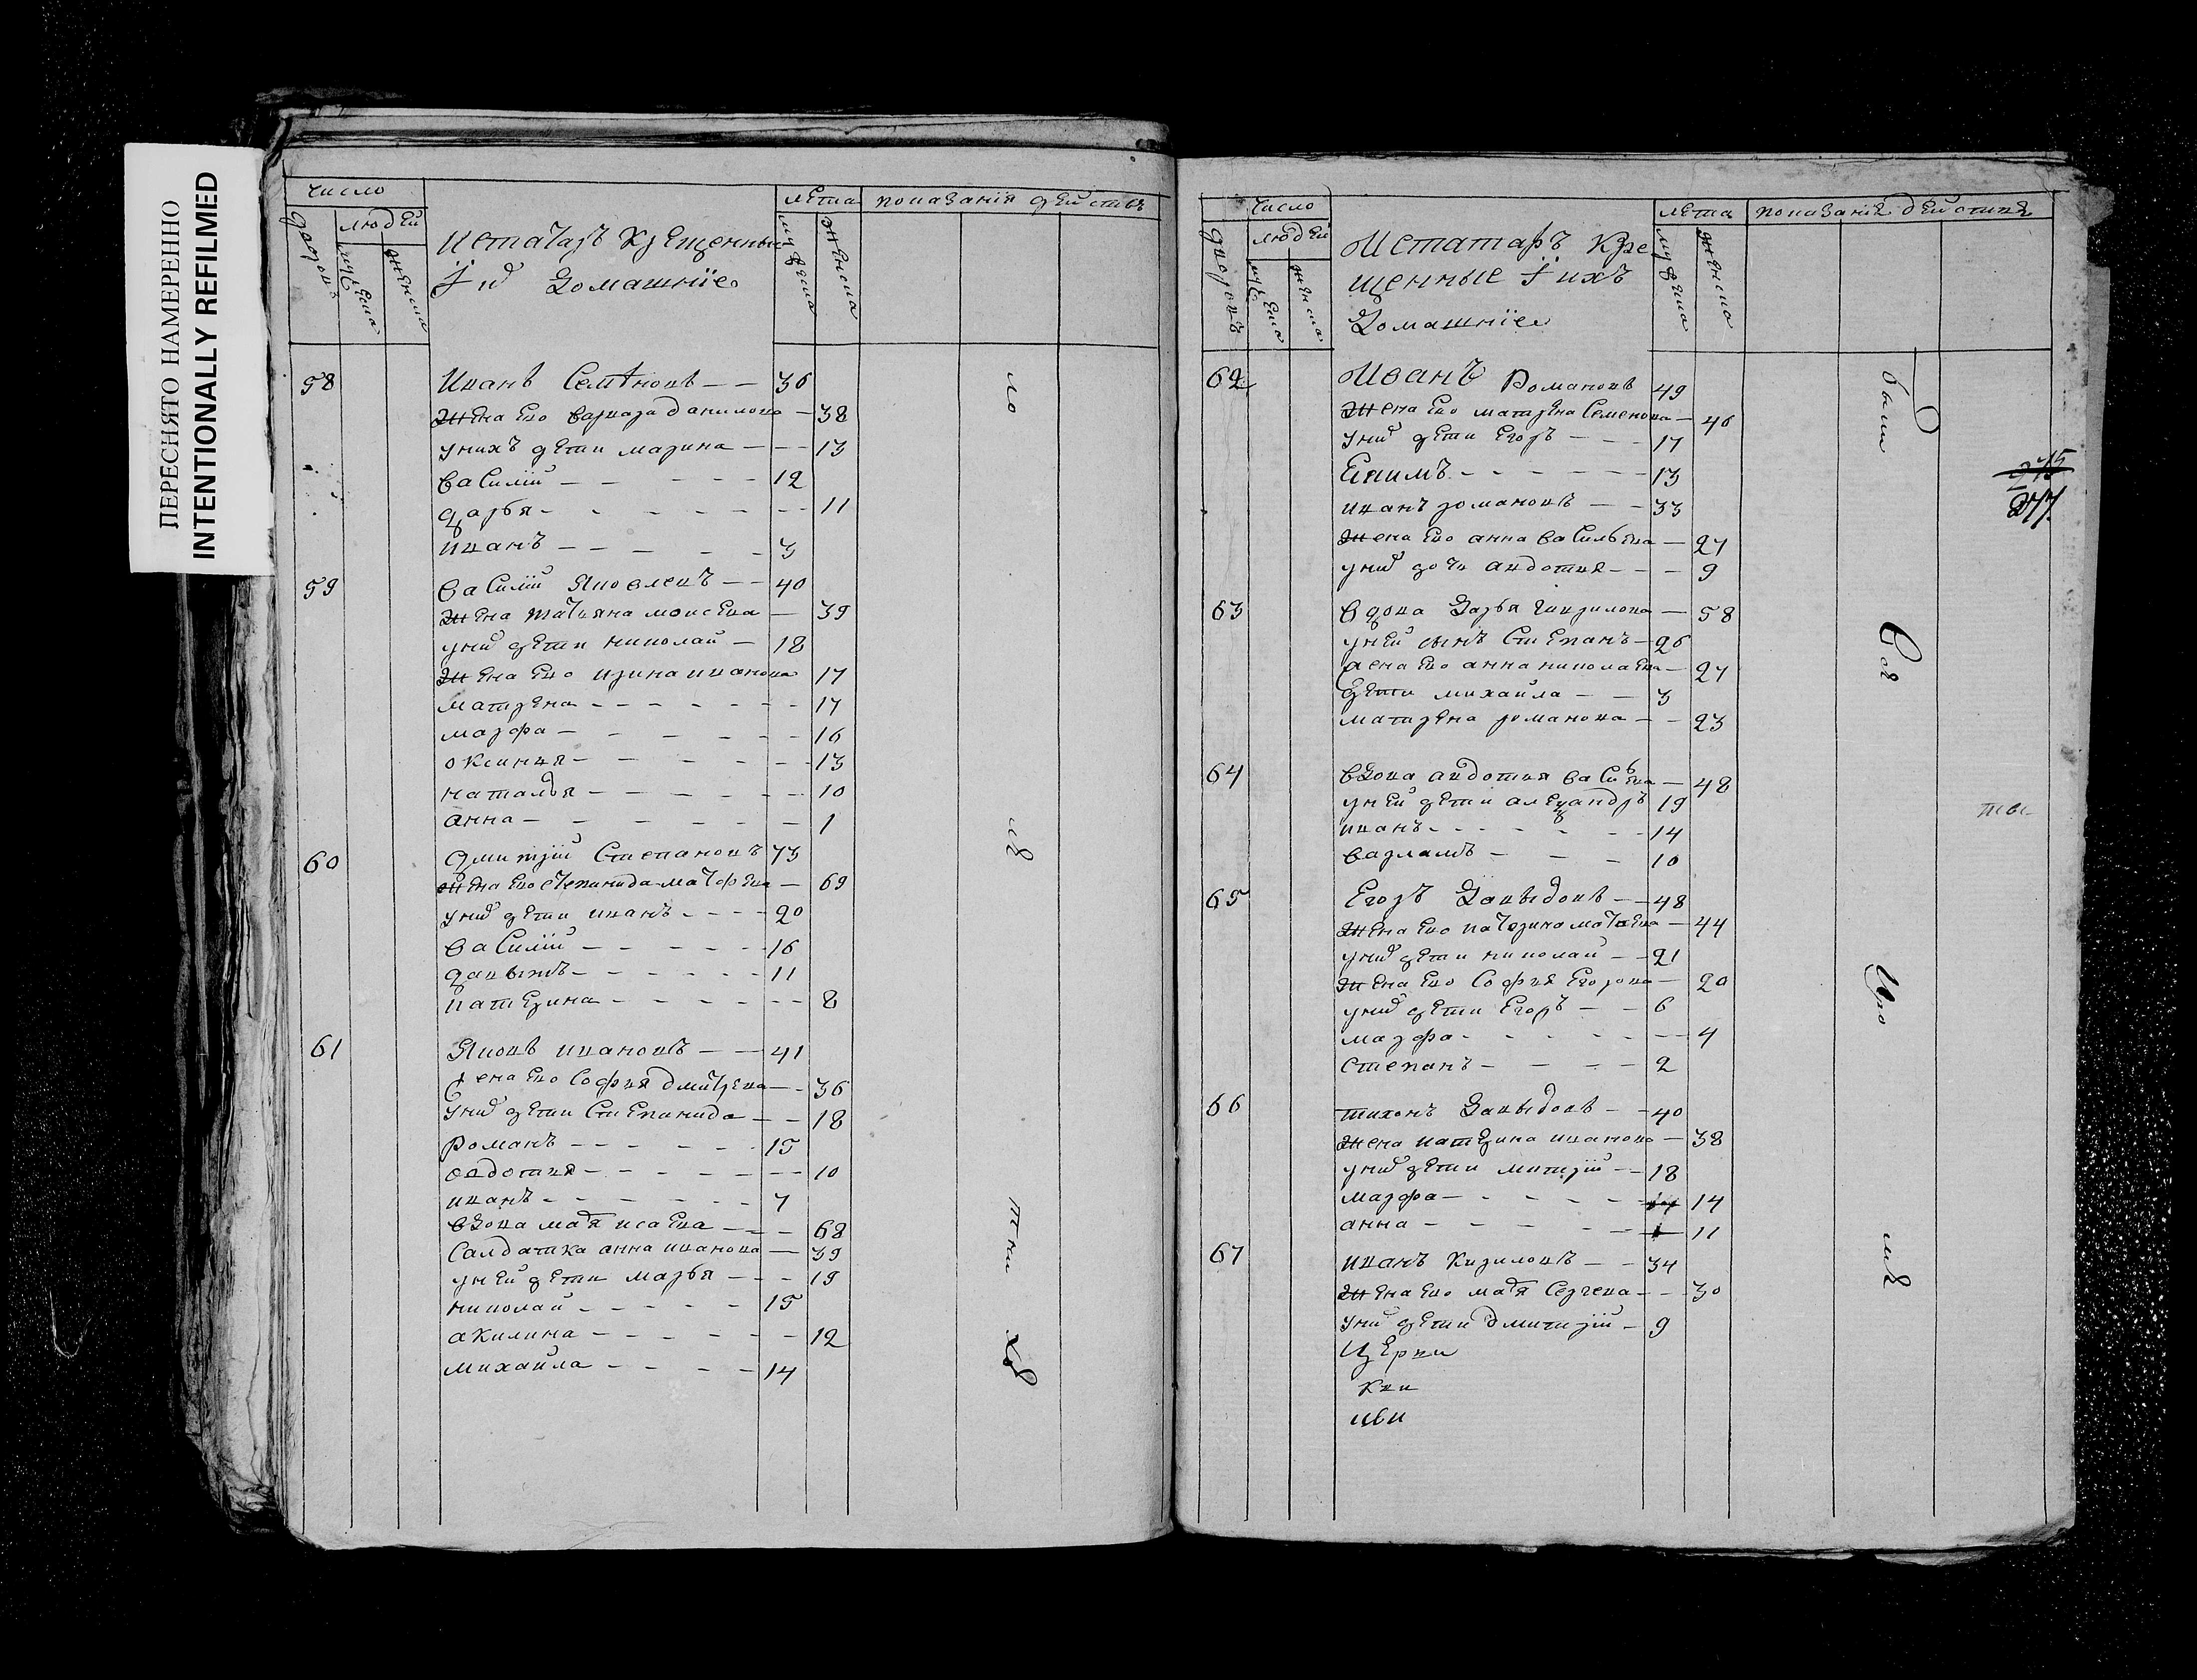 ПЕРЕСНЯТО НАМЕРЕННО
INTENTIONALLY REFILMED
число
людей
дворовъ
мужеска
женска
Истатаръ крещенные
їихъ домашнїе
лета
мужеска
женска
показанїя действъ
58 Иванъ Семѣновъ — — 36
Жена ево варвара данилова — 38
унихъ дети марина — — — 13
василїй — — — — — 12
дарья — — — — — — 11
иванъ — — — — — 3
59 василїй Яковлевъ — — 40
жена татьяна моисева — 39
уних дети николай — 18
жена ево ирина иванова 17
матрена — — — — — — 17
марфа — — — — — — 16
оксинья — — — — — 13
наталья — — — — — 10
анна — — — — — — 1
60 дмитрїй Степановъ 73
жена ево степанида матфева — 69
уних дети иванъ — — — 20
василїй — — — — — 16
давыдъ — — — — — 11
катерина — — — — — 8
61 Яковъ ивановъ — — 41
жена ево Софья дмитрева — — 36
уних дети Степанида — — 18
Романъ — — — — — 15
овдотья — — — — — — 10
иванъ — — — — — — 7
вдова марья исаева — — — 68
Салдатка анна иванова — 39
уней дети марья — — — 19
николай — — — — — 15
акилина — — — — — — 12
михайла — — — — — 14
ло
лѣ
тни
хъ
число
людей
дворовъ
мужеска
женска
Истатаръ кре
щенные їихъ
Домашнїе
лета
мужеска
женска
показанїе действъ
62 Иванъ Романовъ 49
жена ево матрена Семенова — 46
уних дети Егоръ — — — 17
Екимъ — — — — — — 13
иванъ романовъ — — 33
жена ево анна васильева — 27
уних дочь авдотья — — — 9
63 вдова Дарья гаврилова — 58
уней сынъ Степанъ — 26
жена ево анна николаева — 27
дети михайла — — 3
матрена романова — — 23
64 вдова авдотья васильева — 48
уней дети александръ 19
иванъ — — — — — — 14
варламъ — — — 10
65 Егоръ Давыдовъ — — 48
жена ево катерина матвева — 44
уних дети николай — — 21
жена ево Софья Егорова — 20
уних дети Егоръ — — 6
марфа — — — — — — 4
степанъ — — — — 2
66 тихонъ Давыдовъ — — 40
жена катерина иванова — 38
уних дети митрїй — — 18
марфа — — — — — 14
анна — — — — — — 11
67 иванъ Кириловъ — — 34
жена ево марья Сергеева — — 30
уних дети дмитрїй — 9
были
275
277